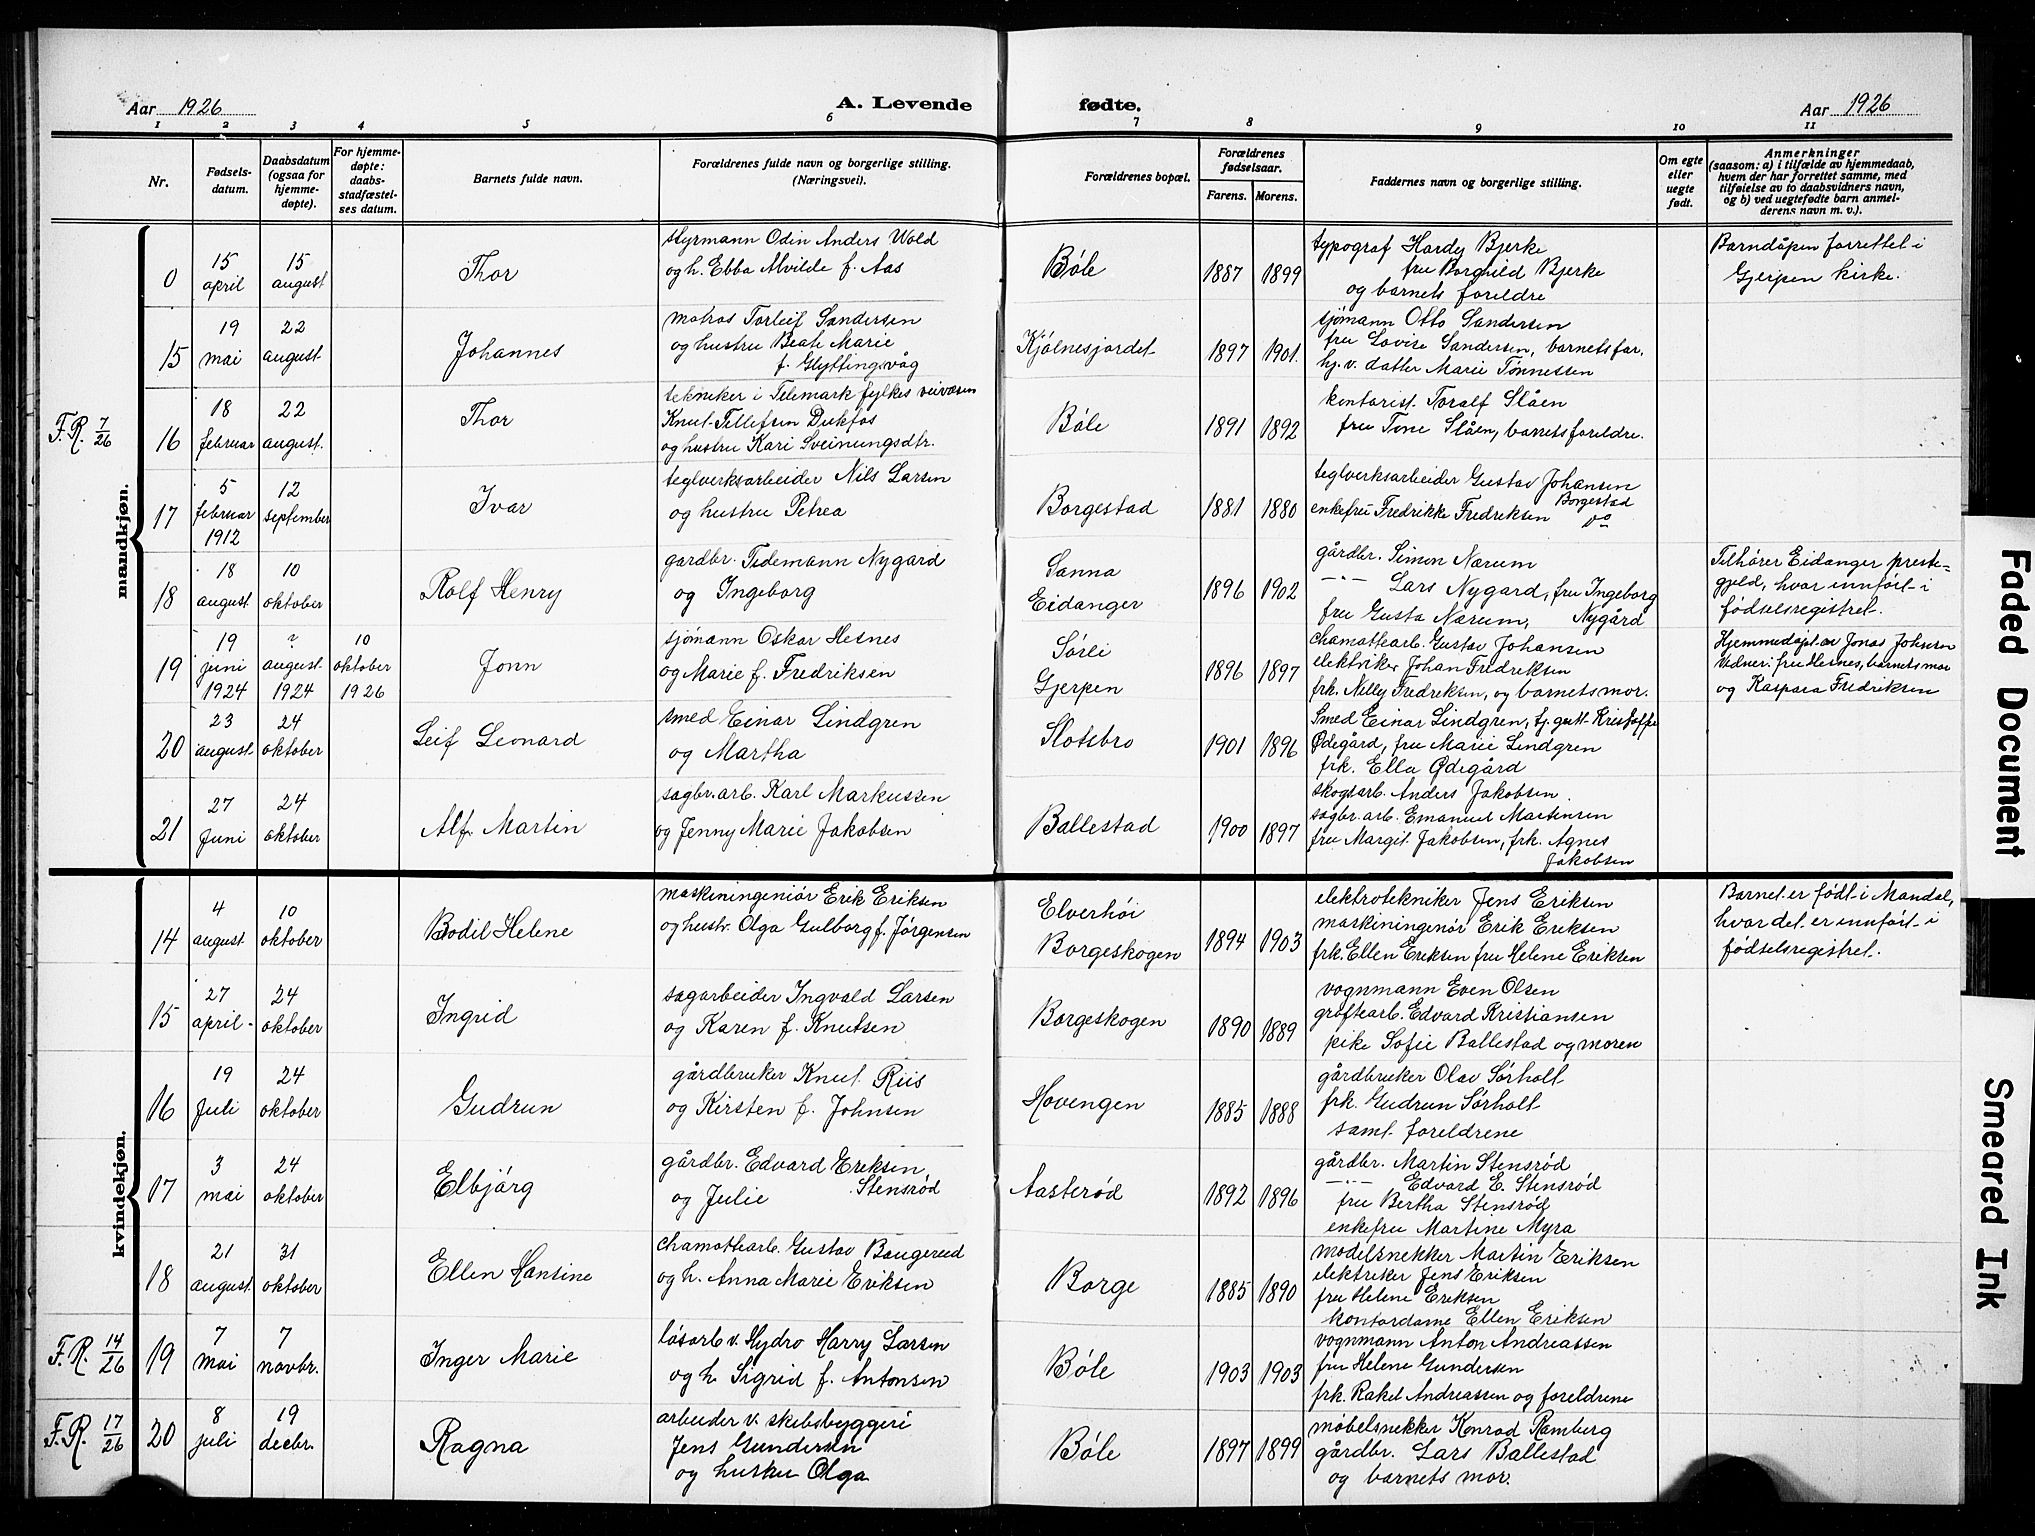 Aar 1926
A. Levende fødte.
Aar 1926
1 2 3 4 5 6 7 8 9 10 11
Nr.
Fødsels-
datum.
Daabsdatum
(ogsaa for
hjemme-
døpte).
For hjemme-
døpte:
daabs-
stadfæstel-
ses datum.
Barnets fulde navn.
Forældrenes fulde navn og borgerlige stilling.
(Næringsvei).
Forældrenes bopæl.
Forældrenes
fødselsaar.
Farens. Morens.
Faddernes navn og borgerlige stilling.
Om egte
eller
uegte
født.
Anmerkninger
(saasom: a) i tilfælde av hjemmedaab,
hvem der har forrettet samme, med
tilføielse av to daabsvidners navn,
og b) ved uegtefødte barn anmel-
derens navn m. v.).
mandkjøn.
0
15
april
15
august
Thor
styrmann Odin Anders Wold
og h. Ebba Alvilde f. Aas
Bøle
1887 1899
typograf Hardy Bjerke
fru Borghild Bjerke
og barnets foreldre
Barndåpen forrettet i
Gjerpen kirke.
15
19
mai
22
august
Johannes
matros Torleif Sandersen
og hustru Beate Marie
f. Glyttingvåg
Kjølnesjordet
1897 1901.
sjømann Otto Sandersen
fru Lovise Sandersen, barnets far,
hj. v. datter Marie Tønnessen
F.R. 7/26
16
18
februar
22
august.
Thor
tekniker i Telemark fylkes veivæsen
Knut Tellefsen Dukfos
og hustru Kari Sveinungsdtr.
Bøle
1891 1892
kontorist Toralf Slåen
fru Tone Slåen, barnets foreldre.
17
5
februar
1912
12
september
Ivar
teglverksarbeider Nils Larsen
og hustru Petrea
Borgestad
1881 1880
teglverksarbeider Gustav Johansen
Borgestad
enkefru Fredrikke Fredriksen do
18
18
august
10
oktober
Rolf Henry
gardbr. Tidemann Nygård
og Ingeborg
Sanna
Eidanger
1896 1902
gårdbr. Simon Nærum
-"- Lars Nygard, fru Ingeborg
fru Gusta Nærum, Nygård
Tilhører Eidanger preste-
gjeld, hvor innført i
fødselsregistret.
19
19
juni
1924
?
august
1924
10
oktober
1926
Jonn
sjømann Oskar Hesnes
og Marie f. Fredriksen
Sørli
Gjerpen
1896 1897
chamottearb. Gustav Johansen
elektriker Johan Fredriksen
frk. Nelly Fredriksen, og barnets mor.
Hjemmedøpt av Jonas Johnsen
Vidner: fru Hesnes, barnets mor
og Kaspara Fredriksen
20
23
august.
24
oktober
Leif Leonard
smed Einar Lindgren
og Martha
Slotsbro
1901 1896
Smed Einar Lindgren, tj. gutt Kristoffer
Ødegård, fru Marie Lindgren
frk. Ella Ødegård
21
27
Juni
24
oktober
Alf Martin
sagbr. arb. Karl Markussen
og Jenny Marie Jakobsen
Ballestad
1900 1897
skogsarb. Anders Jakobsen.
sagbr. arb. Emanuel Martinsen
fru Margit Jakobsen, frk. Agnes
Jakobsen
kvindekjøn.
14
4
august
10
oktober
Bodil Helene
maskiningeniør Erik Eriksen
og hustr. Olga Gulborg f. Jørgensen
Elverhøi
Borgeskogen
1894 1903
elektrotekniker Jens Eriksen
maskiningeniør Erik Eriksen
frk. Ellen Eriksen fru Helene Eriksen
Barnet er født i Mandal,
hvor det er innført i
fødselsregistret.
15
27
april
24
oktober
Ingrid
sagarbeider Ingvald Larsen
og Karen f. Knutsen
Borgeskogen
1890 1889
vognmann Even Olsen
grøftearb. Edvard Kristiansen
pike Sofie Ballestad og moren
16
19
Juli
24
oktober
Gudrun
gårdbruker Knut Riis
og Kirsten f. Johnsen
Hovengen
1885 1888
gårdbruker Olav Sørholt
frk. Gudrun Sørholt
samt foreldrene
17
3
mai
24
oktober
Elbjørg
gårdbr. Edvard Eriksen
Stensrød
og Julie
Aasterød
1892 1896
gårdbr. Martin Stensrød
-"- Edvard E. Stensrød
fru Bertha Stensrød
enkefru Martine Myra
18
21
august
31
oktober
Ellen Hansine
chamottearb. Gustav Baugerud
og h. Anna Marie Eriksen
Borge
1885 1890
modelsnekker Martin Eriksen
elektriker Jens Eriksen
fru Helene Eriksen
kontordame Ellen Eriksen
F.R. 14/26
19
7
mai
7
novbr.
Inger Marie
løsarb v. Hydro Harry Larsen
og h. Sigrid f. Antonsen
Bøle
1903 1903
vognmann Anton Andreassen
fru Helene Gundersen
frk. Rakel Andreassen og foreldrene
F.R. 17/26
20
8
juli
19
decbr.
Ragna
arbeider v. skibsbyggeri
Jens Gundersen
og hustru Olga
Bøle
1897 1899
møbelsnekker Konrad Ramberg
gårdbr. Lars Ballestad
og barnets mor.
Faded Document
Smeared Ink